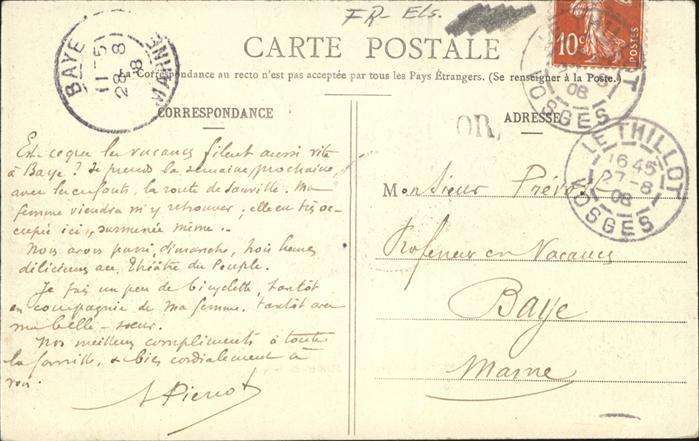 FR- Els.
CARTE POSTALE
La Correspondance au recto n'est pas acceptée par tous les Pays Étrangers. (Se renseigner à la Poste.)
BAYE
11-5
28-8
08
MARNE
10c
POSTES
VOSGES
08
LE THILLOT
16 45
27-8
08
VOSGES
OR
CORRESPONDANCE
Est-ce que les vacances filent aussi vite
à Baye? Je prends la semaine prochaine
avec les enfants, la route de Ma
femme viendra m'y retrouver; elle est très oc-
cupée ici, surmenée même.-
Nous avons passé, dimanche, trois heures
délicieuses au Théâtre du Peuple.
Je fais un peu de bicyclette, tantôt
en compagnie de ma femme, tantôt avec
ma belle-soeur.
Nos meilleurs compliments à toute
la famille, & bien cordialement à
vous.
Pierrot
ADRESSE
Monsieur Prévot
Professeur en Vacances
Baye
Marne